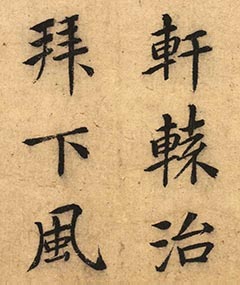 軒轅治
拜下風